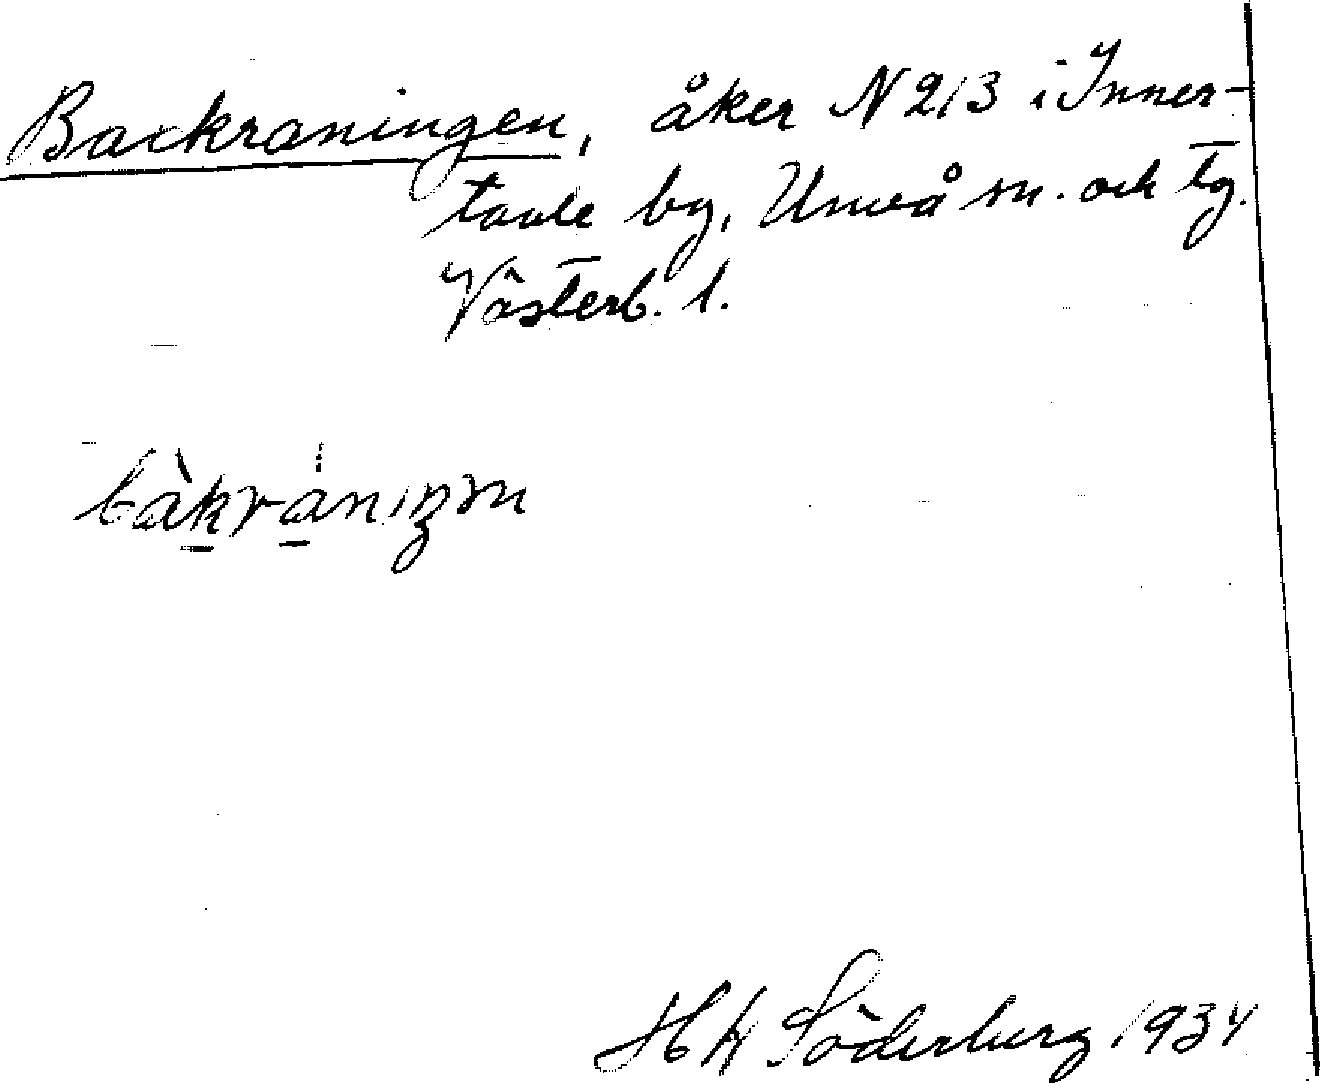 Backraningen, åker N 213 i Inner-
tavle by, Umeå sn. och tg.
Västerb. l.
bàkràniŋɴ
H H Söderberg 1934